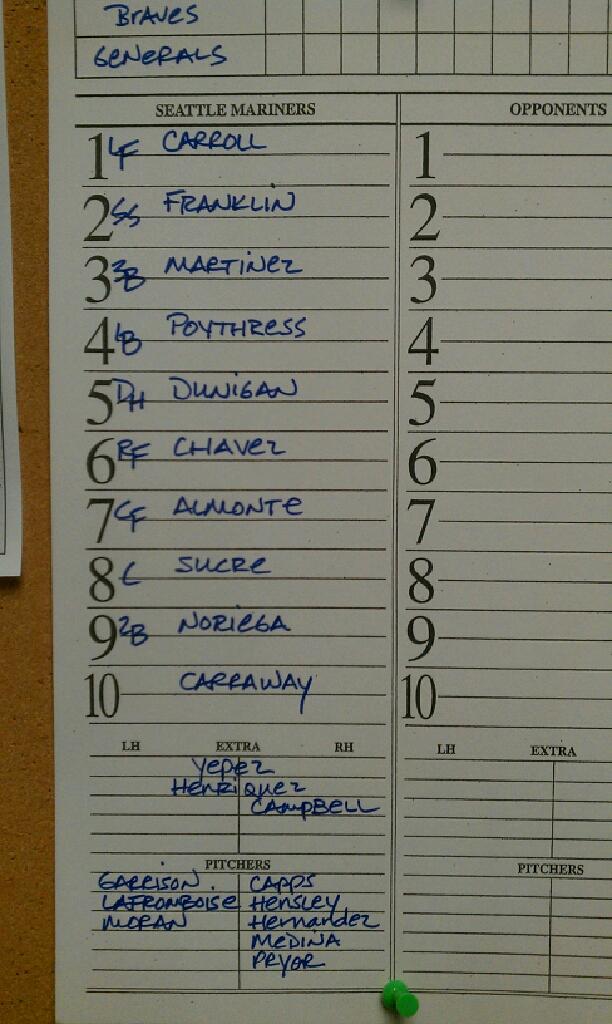 BRAVES
GENERALS
SEATTLE MARINERS
OPPONENTS
1 LF CARROLL
2 SS FRANKLIN
3 3B MARTINEZ
4 1B POYTHRESS
5 DH DUNIGAN
6 RF CHAVEZ
7 CF ALMONTE
8 C SUCRE
9 2B NORIEGA
10 CARRAWAY
1
2
3
4
5
6
7
8
9
10
LH EXTRA RH
YEPEZ
HENRIQUEZ
CAMPBELL
PITCHERS
GARRISON CAPPS
LAFROMBOISE HENSLEY
MORAN HERNANDEZ
MEDINA
PRYOR
LH EXTRA
PITCHERS